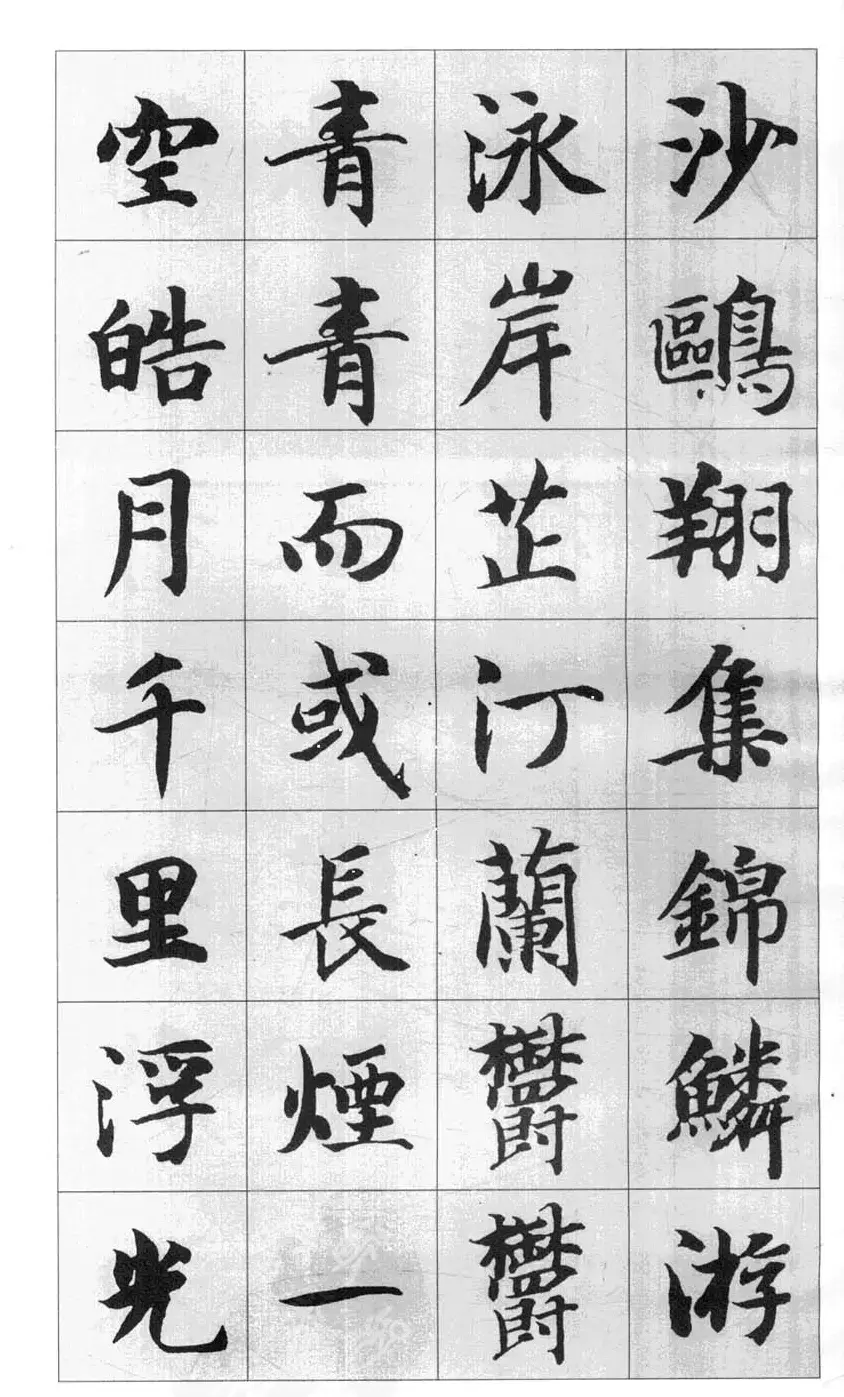 沙鷗翔集錦鱗游
泳岸芷汀蘭鬱鬱
青青而或長煙一
空皓月千里浮光